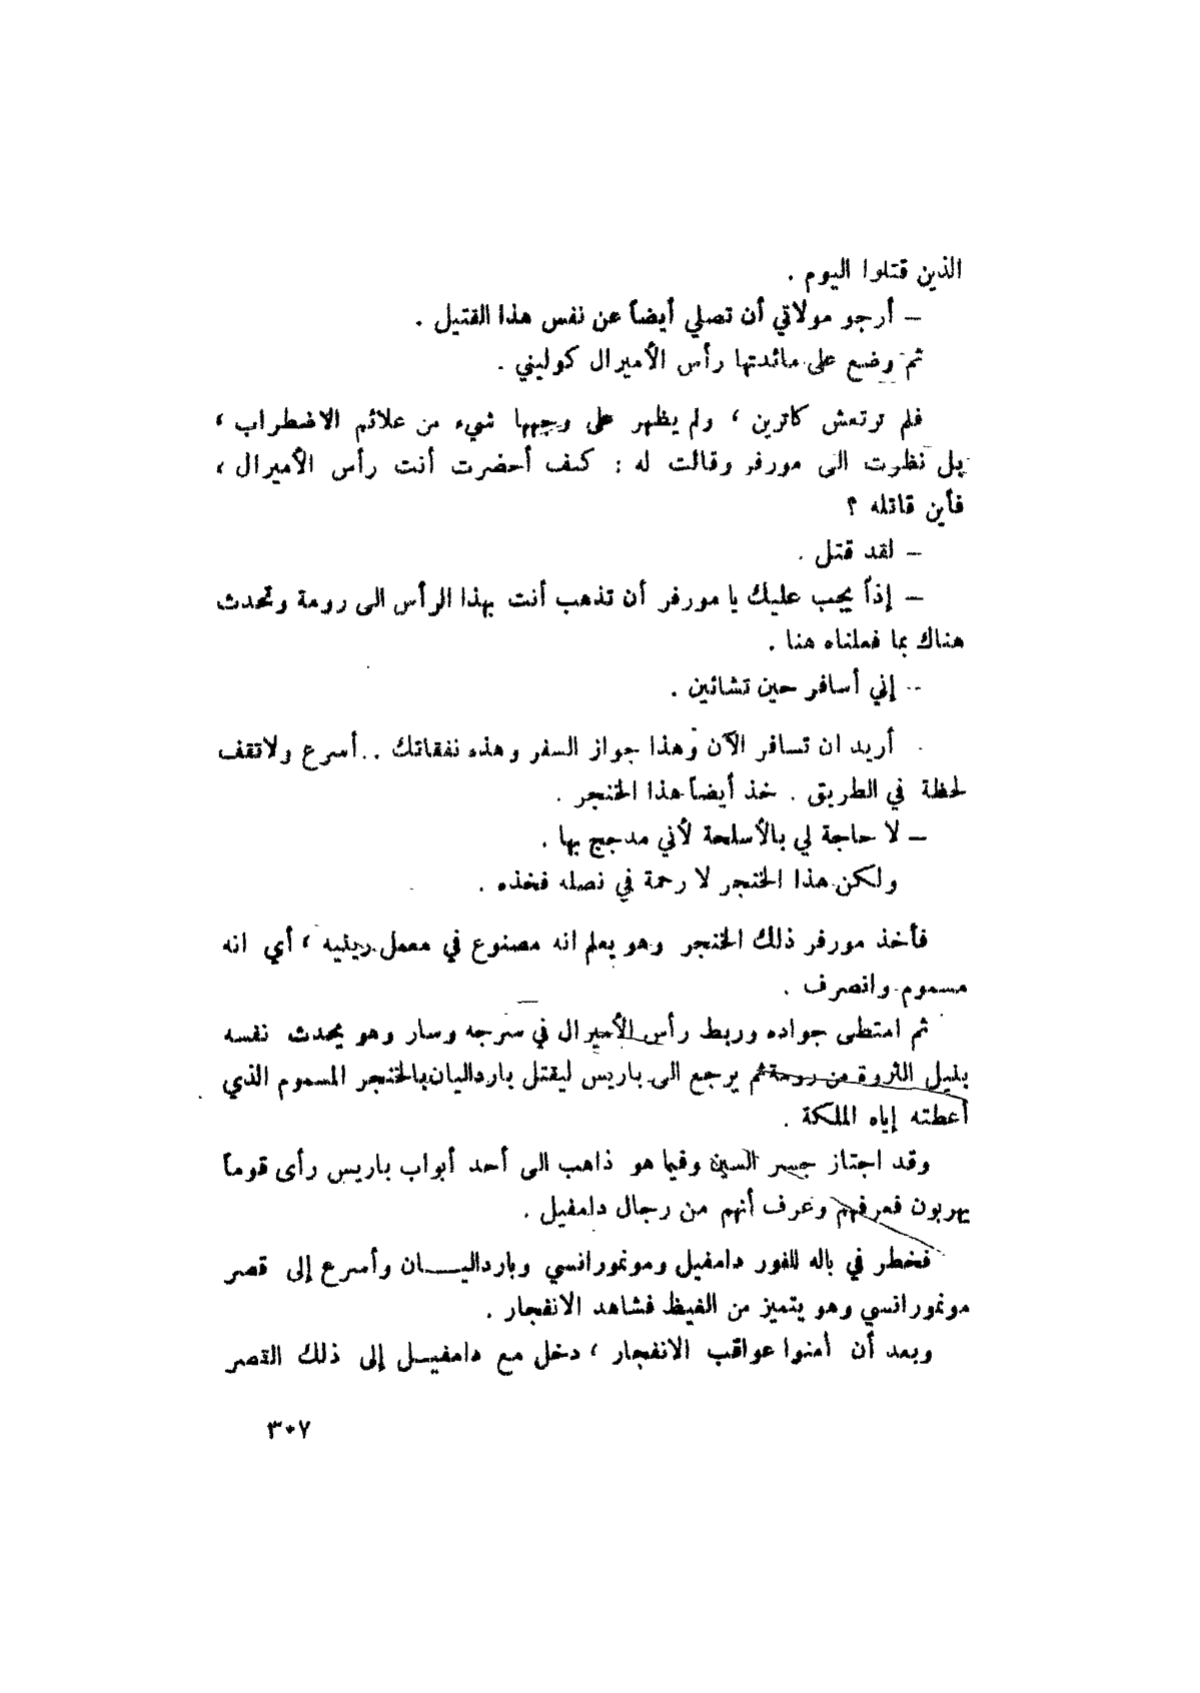 الذين قتلوا اليوم .
– أرجو مولاتي أن تصلي أيضاً عن نفس هذا القتيل .
ثم وضع على مائدتها رأس الأميرال كوليني .
فلم ترتعش كاترين ، ولم يظهر على وجهها شيء من علائم الاضطراب ،
بل نظرت الى مورفر وقالت له : كيف أحضرت أنت رأس الأميرال ،
فأين قاتله ؟
– لقد قتل .
– إذاً يجب عليك يا مورفر أن تذهب أنت بهذا الرأس الى رومة وتحدث
هناك بما فعلناه هنا .
– إني أسافر حين تشائين .
. أريد ان تسافر الآن وهذا جواز السفر وهذه نفقاتك .. أسرع ولاتقف
لحظة في الطريق . خذ أيضاً هذا الخنجر .
– لا حاجة لي بالأسلحة لأني مدجج بها .
ولكن هذا الخنجر لا رحمة في نصله فخذه .
فأخذ مورفر ذلك الخنجر وهو يعلم انه مصنوع في معمل رينيه ، أي انه
مسموم وانصرف .
ثم امتطى جواده وربط رأس الأميرال في سرجه وسار وهو يحدث نفسه
بنيل الثروة من رومة ثم يرجع الى باريس ليقتل بارداليان بالخنجر المسموم الذي
أعطته إياه الملكة .
وقد اجتاز جسر السين وفيما هو ذاهب الى أحد أبواب باريس رأى قوماً
يهربون فعرفهم وعرف أنهم من رجال دامفيل .
فخطر في باله للفور دامفيل ومونمورانسي وبارداليـــان وأسرع إلى قصر
مونمورانسي وهو يتميز من الغيظ فشاهد الانفجار .
وبعد أن أمنوا عواقب الانفجار ، دخل مع دامفيـل إلى ذلك القصر
٣٠٧